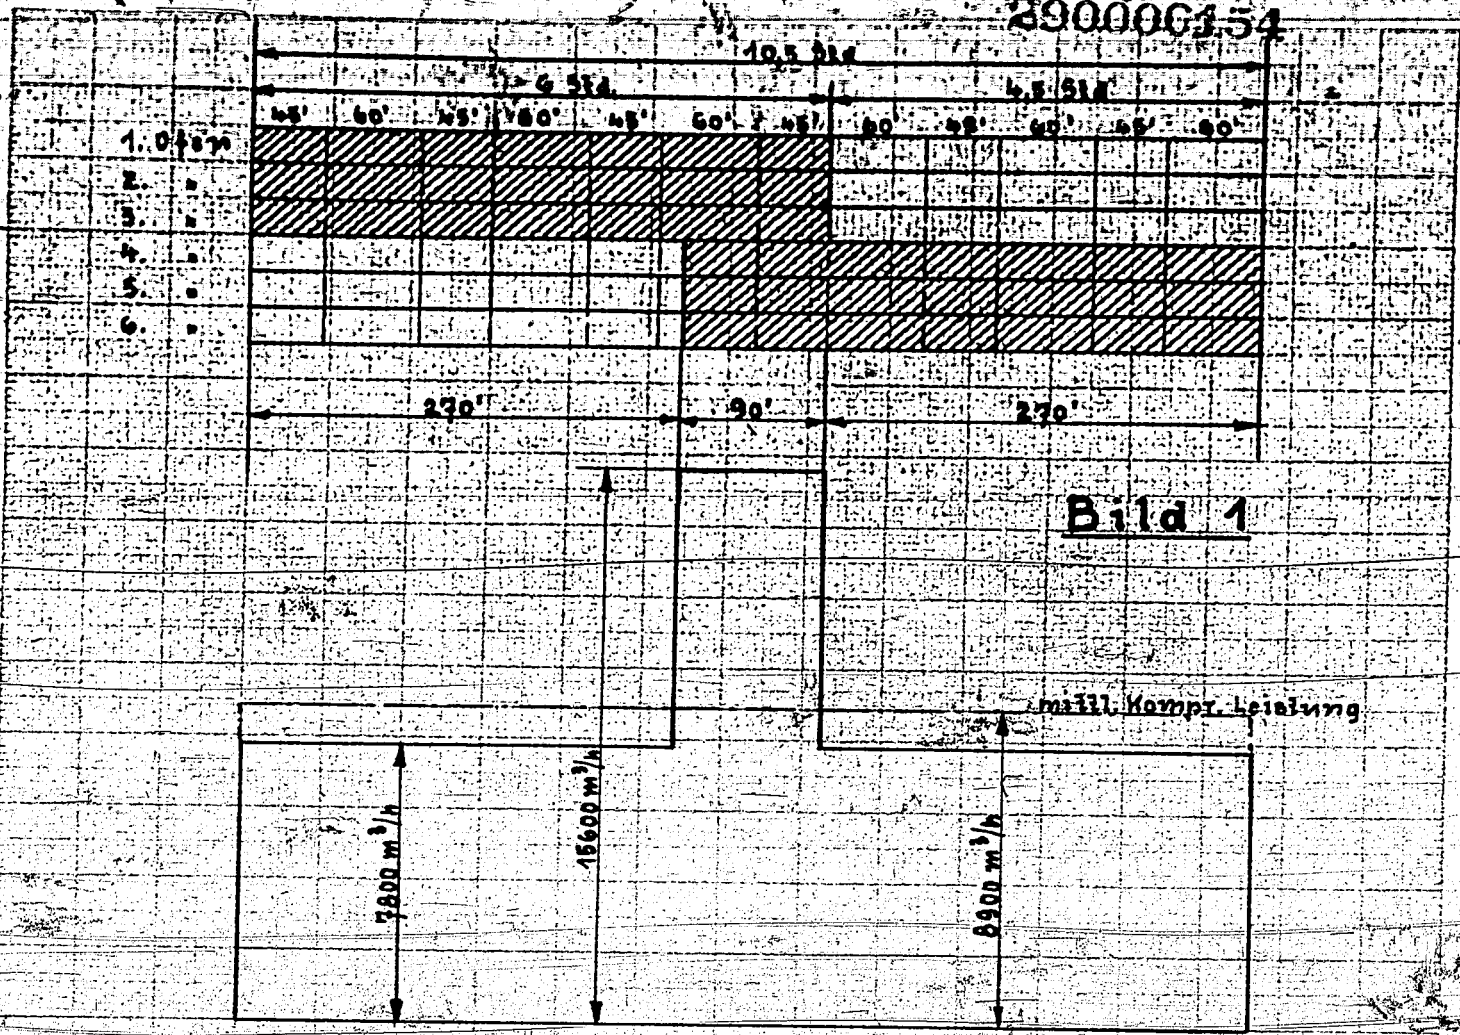 10,5 Std
6 Std. 4,5 Std
45' 60' 45' 60' 45' 60' 45' 60' 45' 60' 45' 60'
1. Ofen
2. "
3. "
4. "
5. "
6. "
270' 90' 270'
Bild 1
mittl. Kompr. Leistung
7800 m³/h
15600 m³/h
8900 m³/h